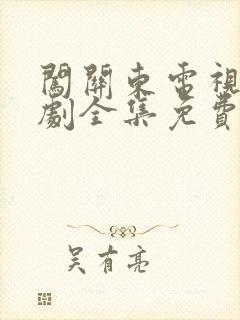 闖關東電視
劇全集免費
吴有亮